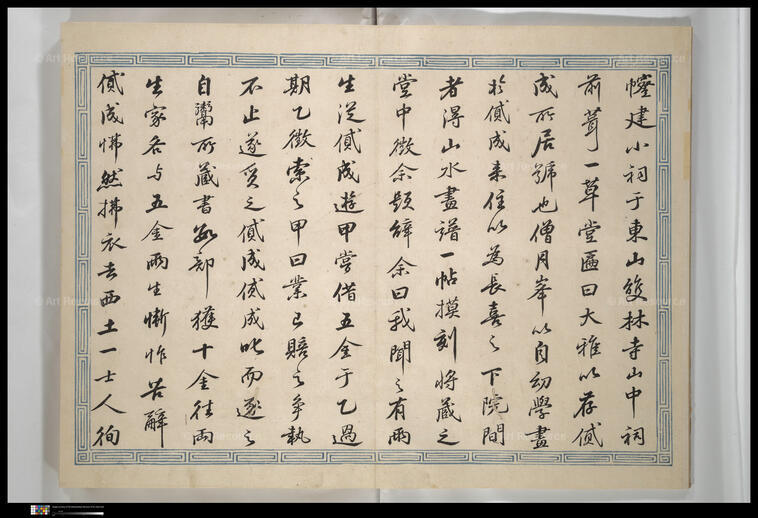 幢建小祠于東山雙林寺山中祠
前葺一草堂匾曰大雅以存貸
成所居號也僧月峯以自幼學畫
於貸成来住以為長喜之下院間
者得山水畫譜一帖摸刻将蔵之
堂中徴余題辭余曰我聞之有兩
生從貸成遊甲嘗借五金于乙過
期乙徴索之甲曰業已賠之争執
不止遂質之貸成貸成叱而逐之
自鬻所蔵書數部獲十金徃兩
生家各与五金兩生慚怍苦辭
貸成怫然拂衣去西土一士人徇